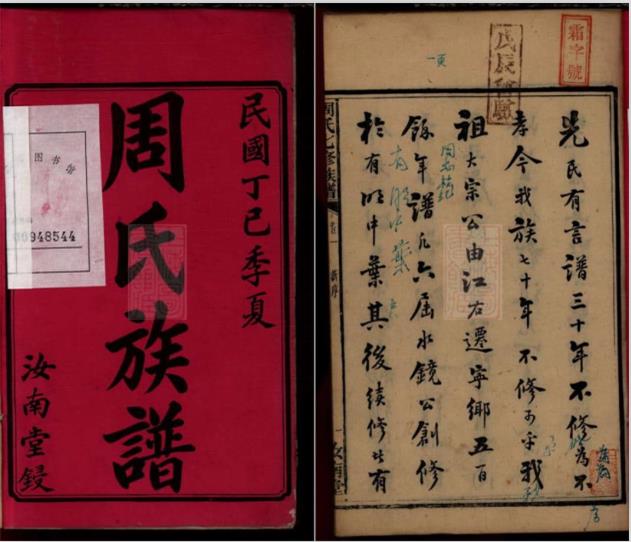 民國丁巳季夏
周氏族譜
汝南堂鋟
圖書館
948544
霜字號
戊辰
一頁
先民有言譜三十年不修為不
孝今我族七十年不修可乎我
祖大宗公由江右遷寧鄉五百
餘年譜凡六屆水鏡公創修
於有明中葉其後續修皆有
周氏七修族譜
卷一
汝南堂
序